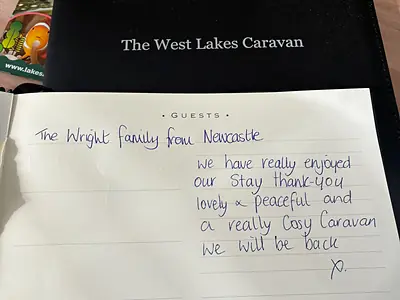 www.lakes
The West Lakes Caravan
• GUESTS •
The Wright family from Newcastle
we have really enjoyed
our Stay thank-you
lovely & peaceful and
a really Cosy Caravan
We will be back
x.